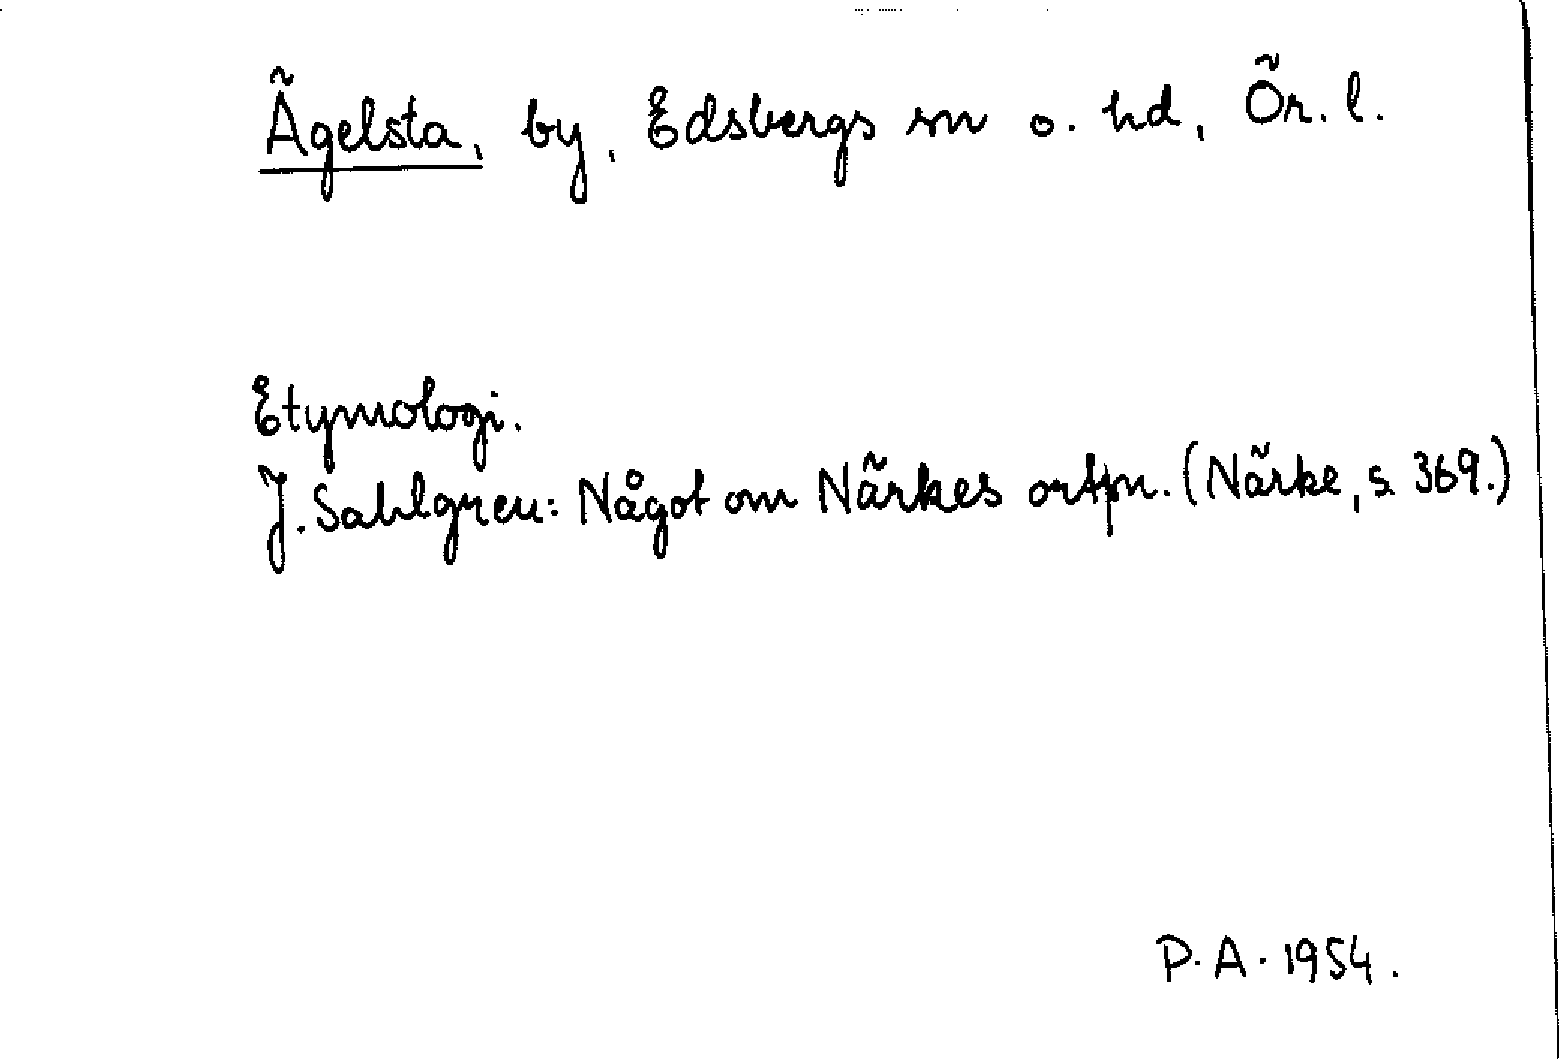 Ägelsta, by, Edsbergs sn o. hd, Ör. l.
Etymologi.
J. Sahlgren: Något om Närkes ortpn. (Närke, s. 369.)
P. A. 1954.